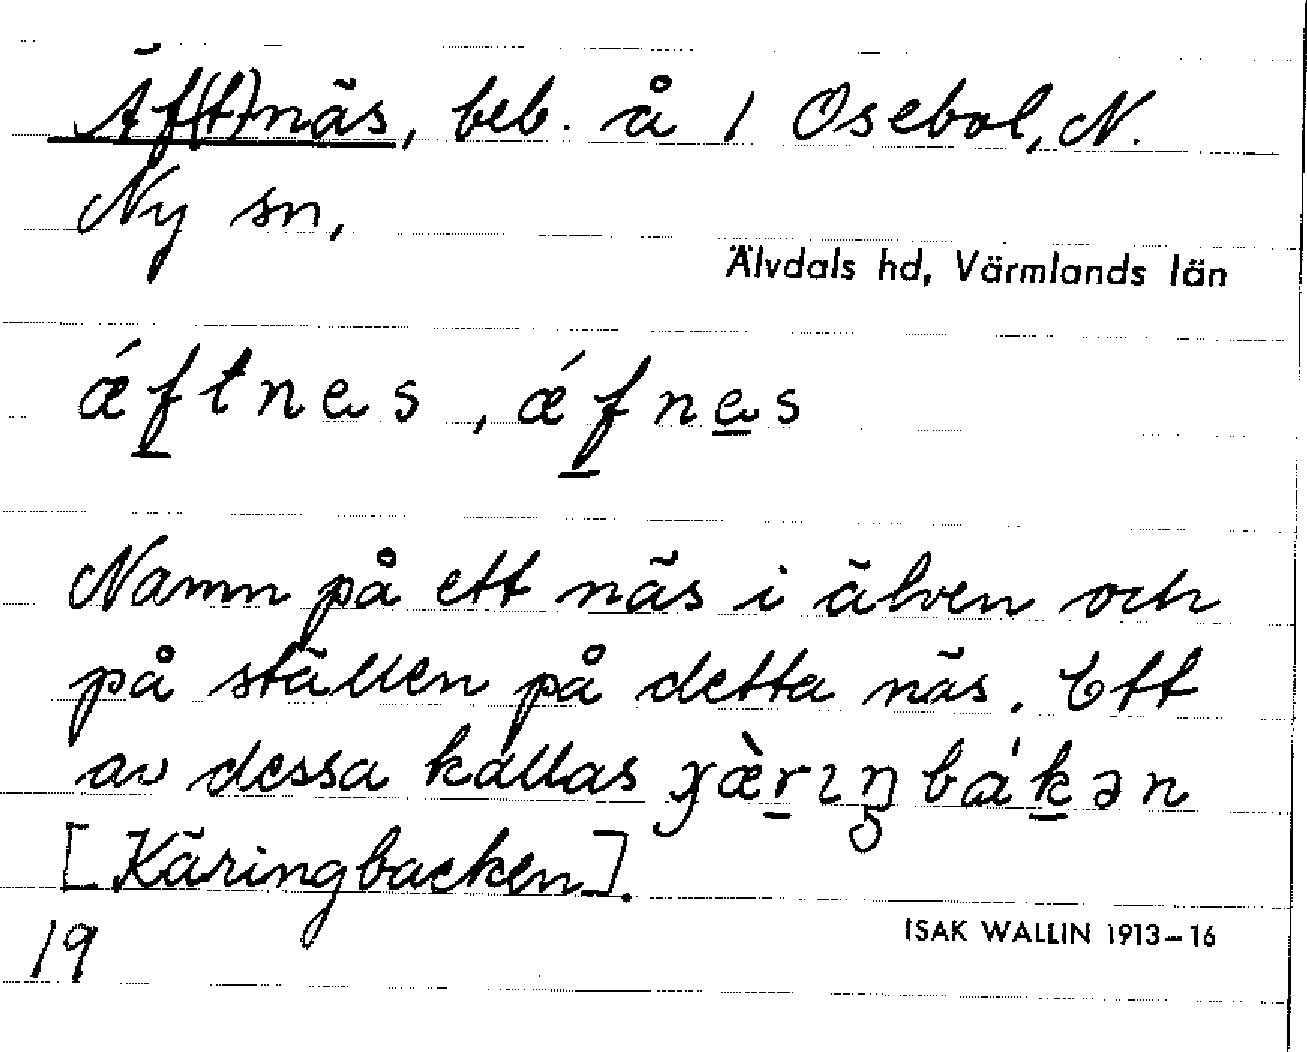 Äf(t)näs, beb. å 1 Osebol, N.
Ny sn,
Älvdals hd, Värmlands län
ǽftnes, ǽfnes
Namn på ett näs i älven och
på ställen på detta näs. Ett
av dessa kallas
[Käringbacken].
19
ISAK WALLIN 1913–16